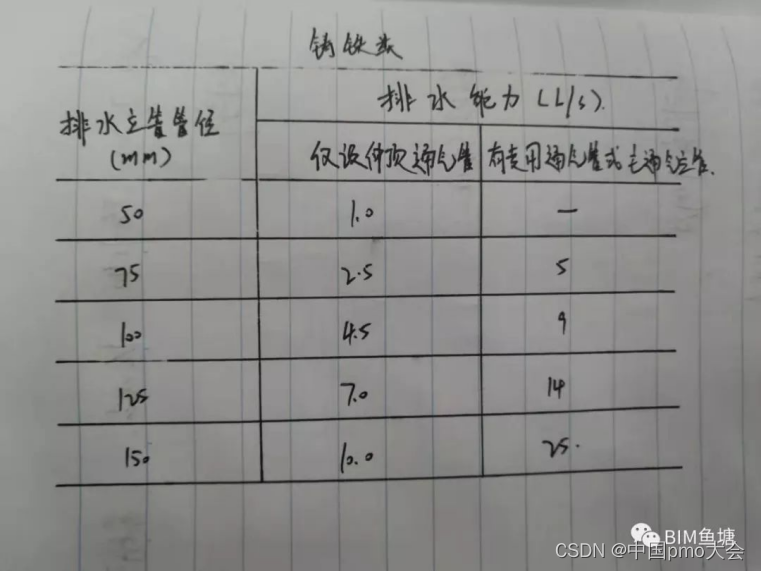 铸铁类
排水能力(L/s).
排水立管管径
(mm)
仅设伸顶通气管 有专用通气管或主通气立管.
50 1.0 —
75 2.5 5
100 4.5 9
125 7.0 14
150 10.0 25.
BIM鱼塘
CSDN @中国pmo大会